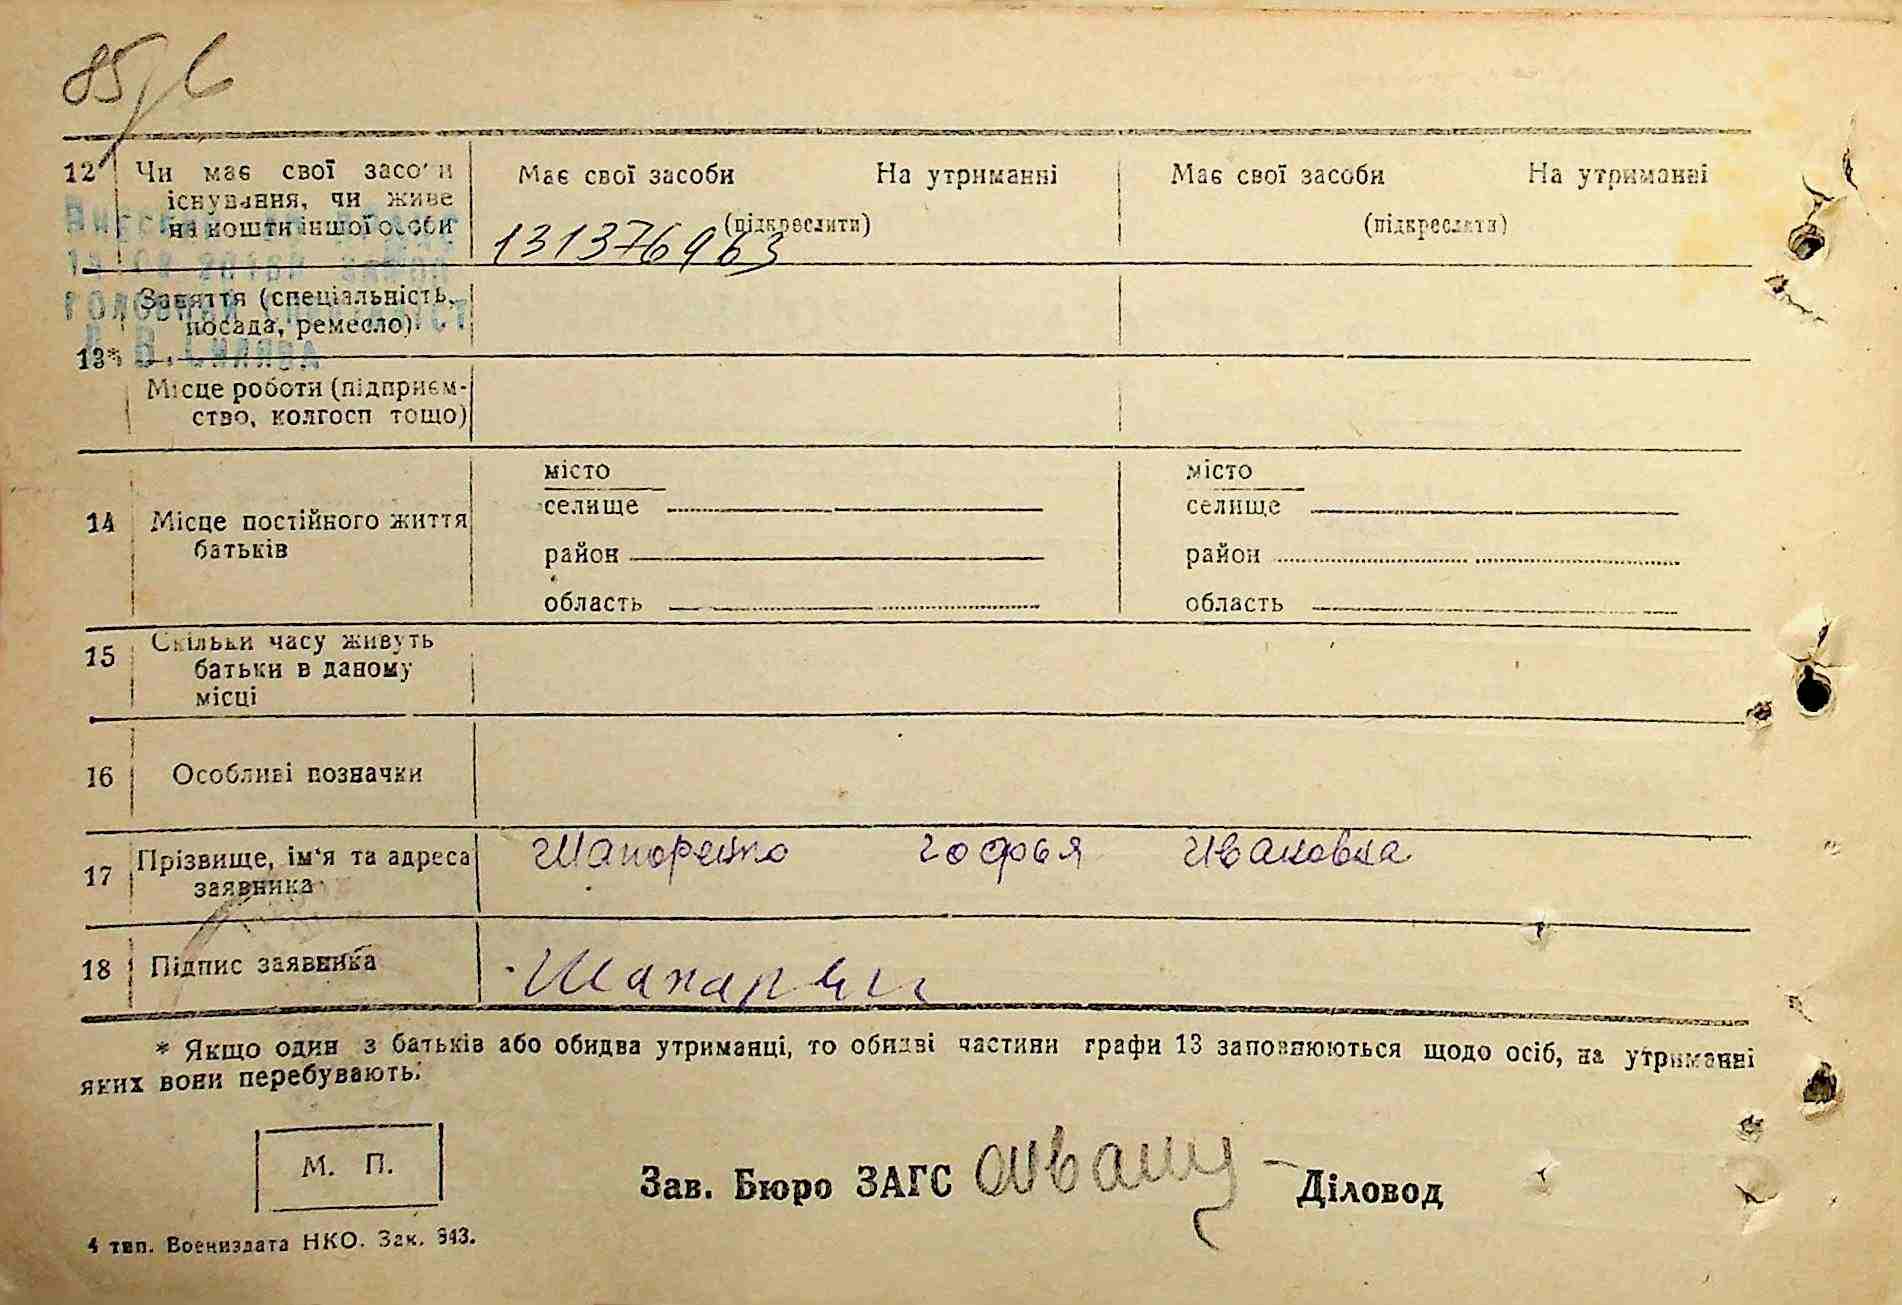 85
12 Чи має свої засоби Має свої засоби На утриманні Має свої засоби На утриманні
існування, чи живе
на кошти іншої особи (підкреслити) (підкреслити)
131376963
Заняття (спеціальність,
посада, ремесло)
13*
Місце роботи (підприєм-
ство, колгосп тощо)
місто місто
селище селище
14 Місце постійного життя
батьків
район район
область область
Скільки часу живуть
15 батьки в даному
місці
16 Особливі позначки
17 Прізвище, ім'я та адреса Шапоренко Софья Ивановна
заявника
18 Підпис заявника
* Якщо один з батьків або обидва утриманці, то обидві частини графи 13 заповнюються щодо осіб, на утриманні
яких вони перебувають.
М. П.
Зав. Бюро ЗАГС Діловод
4 тип. Воениздата НКО. Зак. 943.